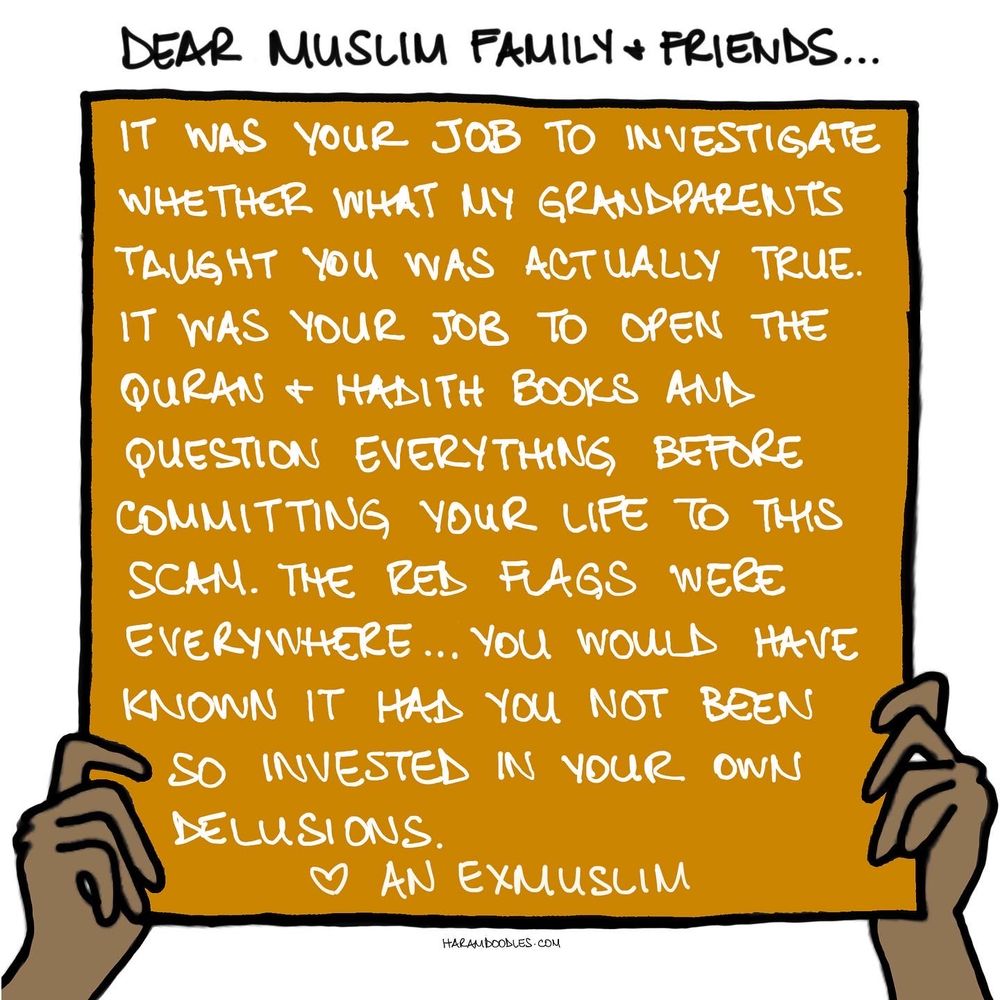 DEAR MUSLIM FAMILY + FRIENDS...
IT WAS YOUR JOB TO INVESTIGATE
WHETHER WHAT MY GRANDPARENTS
TAUGHT YOU WAS ACTUALLY TRUE.
IT WAS YOUR JOB TO OPEN THE
QURAN + HADITH BOOKS AND
QUESTION EVERYTHING BEFORE
COMMITTING YOUR LIFE TO THIS
SCAM. THE RED FLAGS WERE
EVERYWHERE... YOU WOULD HAVE
KNOWN IT HAD YOU NOT BEEN
SO INVESTED IN YOUR OWN
DELUSIONS.
♡ AN EXMUSLIM
HARAMDOODLES.COM